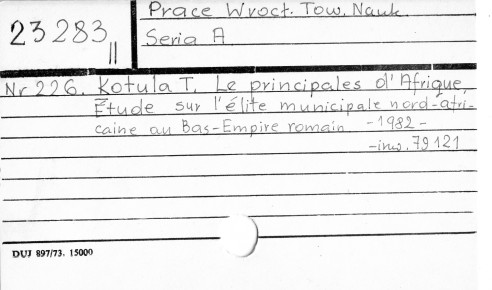 Prace Wrocł. Tow. Nauk.
23283 II
Seria A
Nr 226. Kotula T. Le principales d'Afrique.
Étude sur l'élite municipale nord-afri-
caine au Bas-Empire romain. -1982-
-inw. 79121
DUJ 897/73. 15000